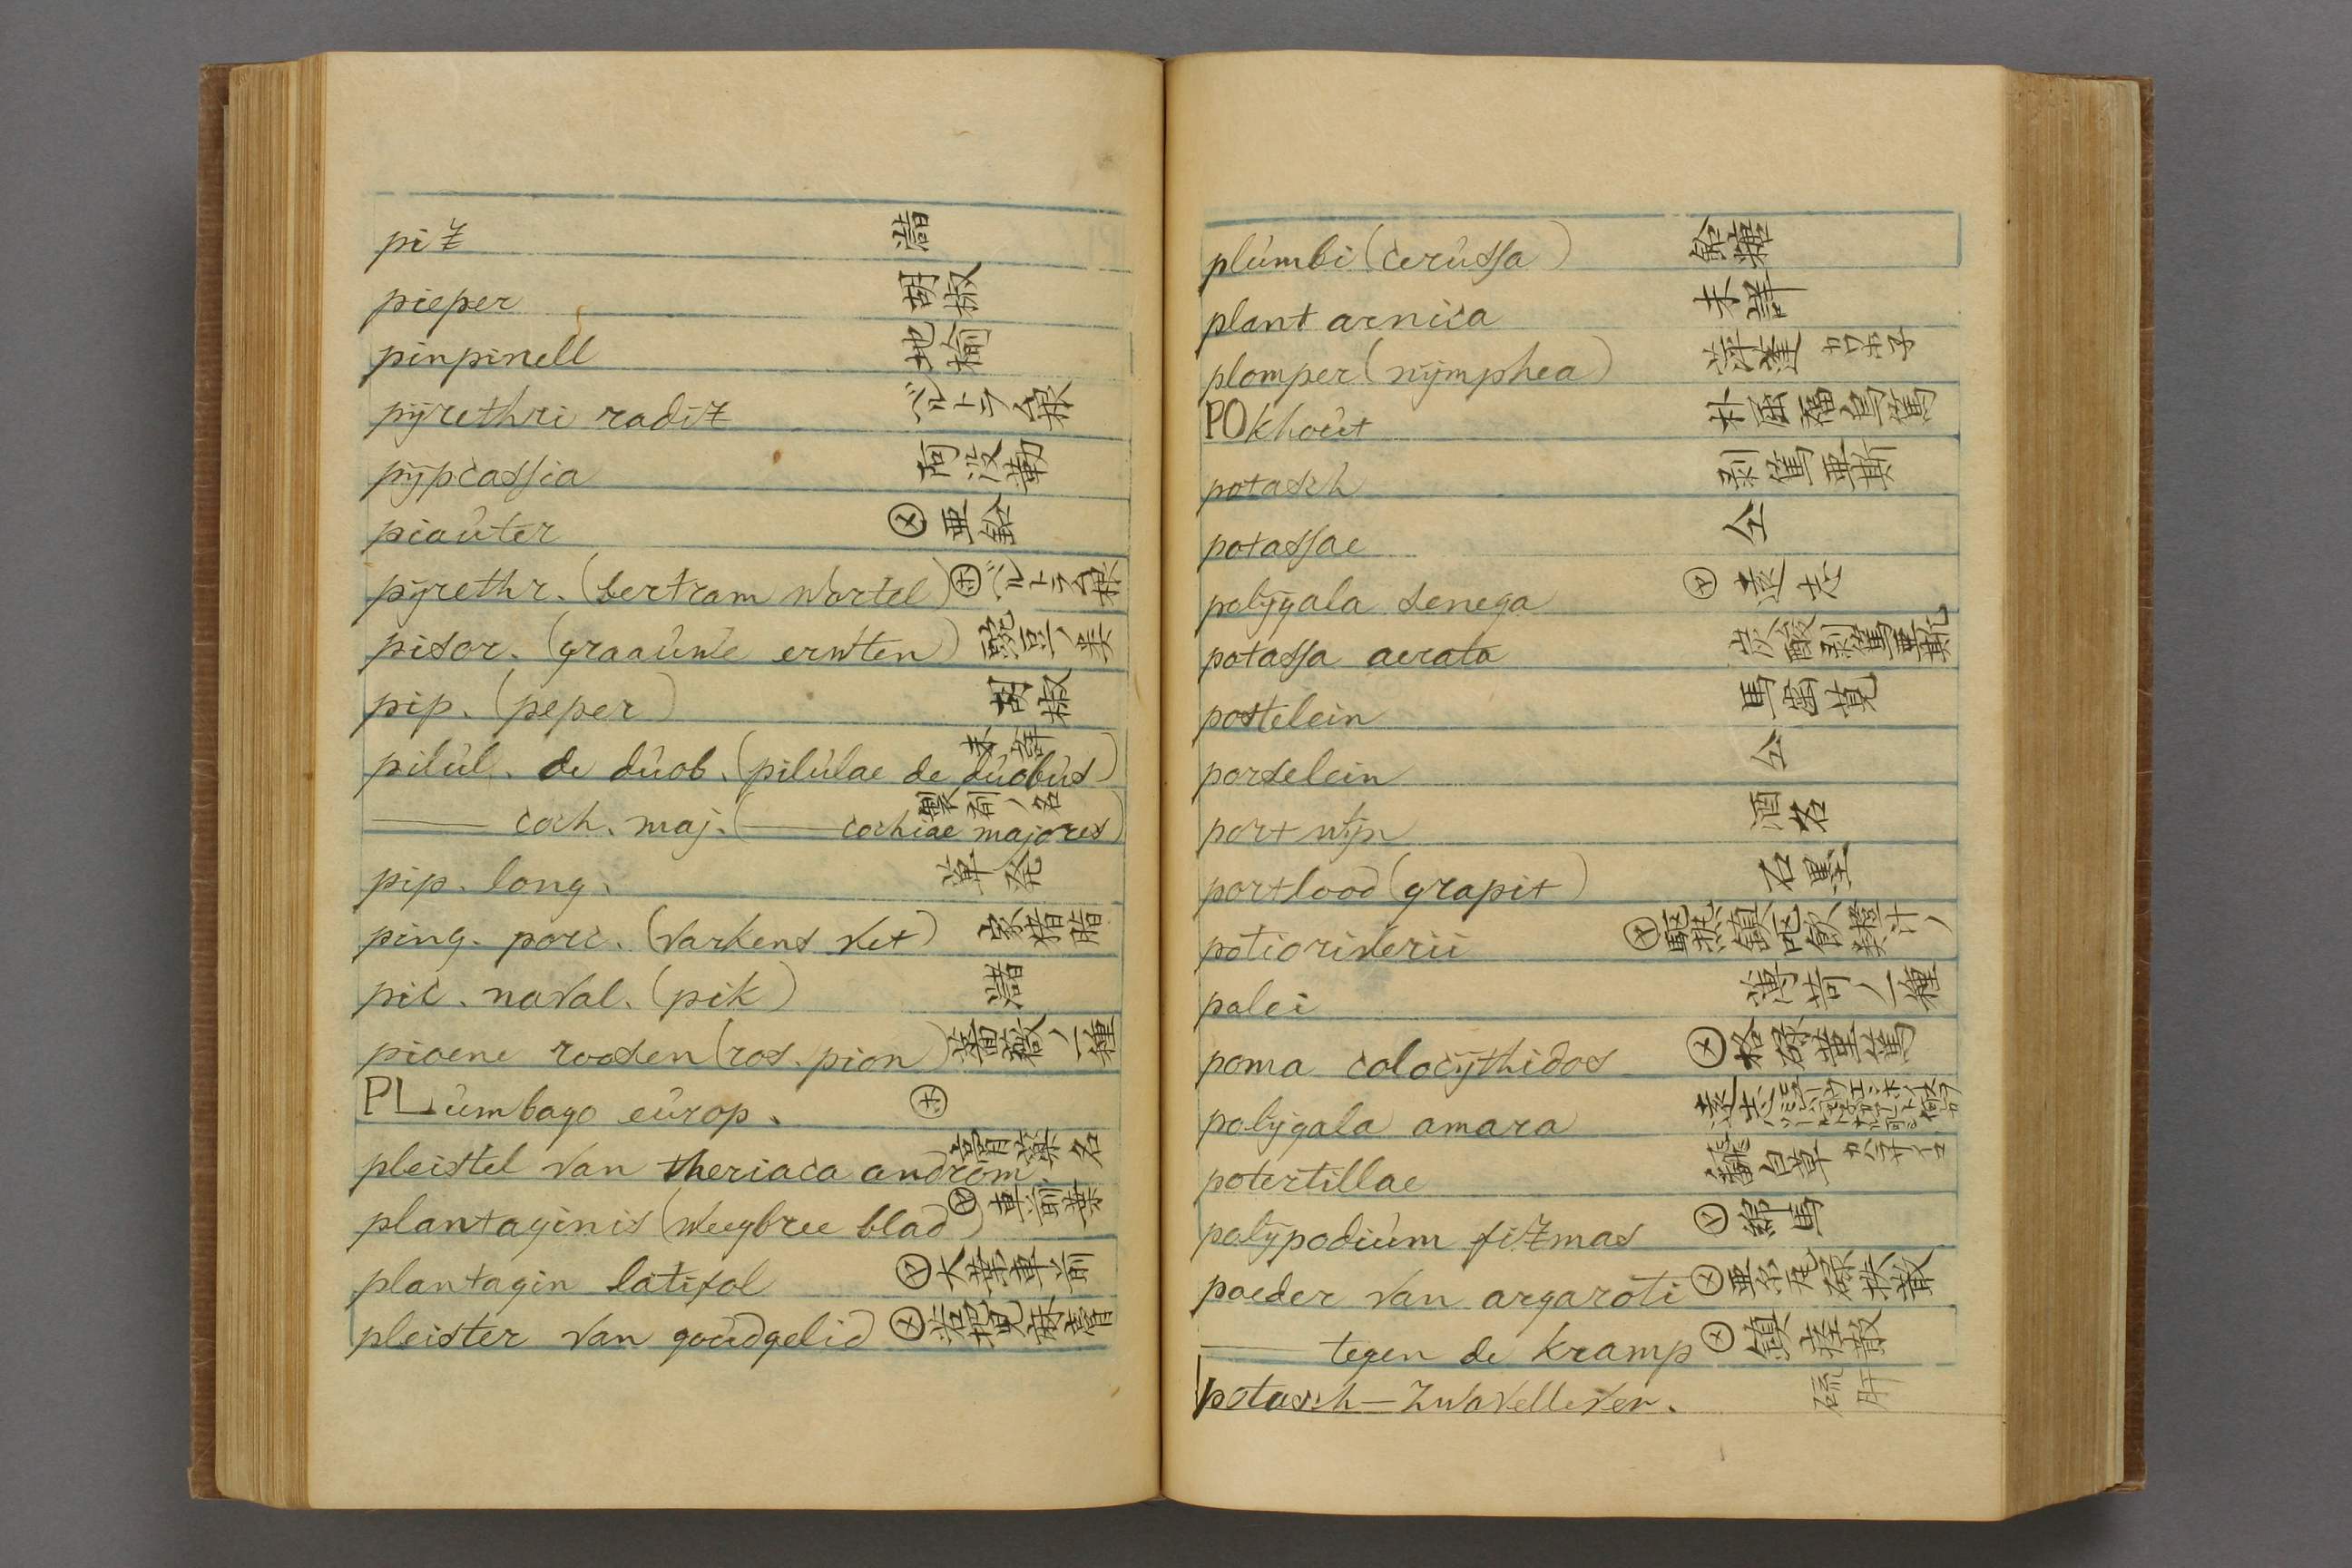 pix 瀝
pieper 胡椒
pinpinell 地榆
pÿrethri radix ベルトラム根
pÿpcassia 阿没勒
piaúter ㋱ 亜鉛
pÿrethr. (bertram wortel) ㋭ ベルトラム根
pisor. (graaúwe erwten) 豌豆ノ類
pip. (peper) 胡椒
pilúl. de dúob. (pilúlae de dúobús) 未詳
—— coch. maj. (—— cochiae majores) 製剤ノ名
pip. long. 蓽茇
ping. porc. (varkens vet) 家猪脂
pic. naval. (pik) 瀝
pioene roosen (ros. pion) 薔薇ノ一種
PLúmbago eúrop. ㋭
pleistel van theriaca androm. 膏薬名
plantaginis (weegbree blad) 車前葉
plantagin latifol 大葉車前
pleister van goúdgelid ㋱
plúmbi (cerússa) 鉛糖
plant arnica 未詳
plomper (nÿmphea) 萍蓬 カワホ子
POkhoút
potasch 剥篤亜斯
potassae 仝
polÿgala senega 遠志
potassa aerata 炭酸剥篤亜斯
postelein 馬歯莧
porselein 仝
port wÿn 酒名
portlood (grapit) 石墨
potioriverii
polei 薄荷ノ一種
poma colocÿthidos ㋱
polÿgala amara 遠志
potertillae
polÿpodiúm fixmas 綿馬
poeder van argaroti ㋱
—— tegen de kramp ㋱ 鎮痙散
potasch-zwavellever. 硫肝